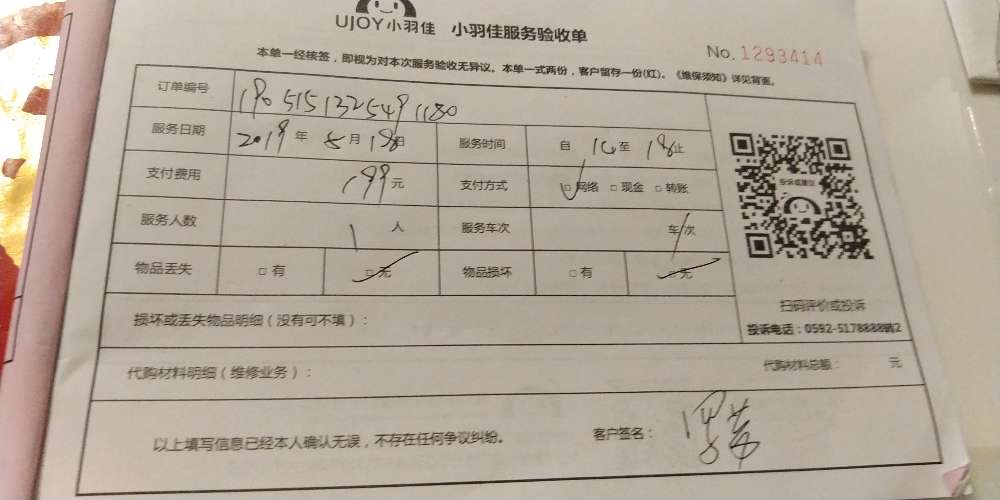 UJOY小羽佳 小羽佳服务验收单
No. 1293414
本单一经核签，即视为对本次服务验收无异议。本单一式两份，客户留存一份(红)。《维保须知》详见背面。
订单编号
服务日期 2019 年 5 月 18 日 服务时间 自 16 至 18 止
支付费用 199 元 支付方式 □ 网络 □ 现金 □ 转账
服务人数 1 人 服务车次 / 车次
物品丢失 □ 有 □ 无 物品损坏 □ 有 □ 无
投诉或建议
扫码评价或投诉
投诉电话：0592-5178888转2
损坏或丢失物品明细（没有可不填）：
代购材料明细（维修业务）： 代购材料总额： 元
以上填写信息已经本人确认无误，不存在任何争议纠纷。 客户签名：